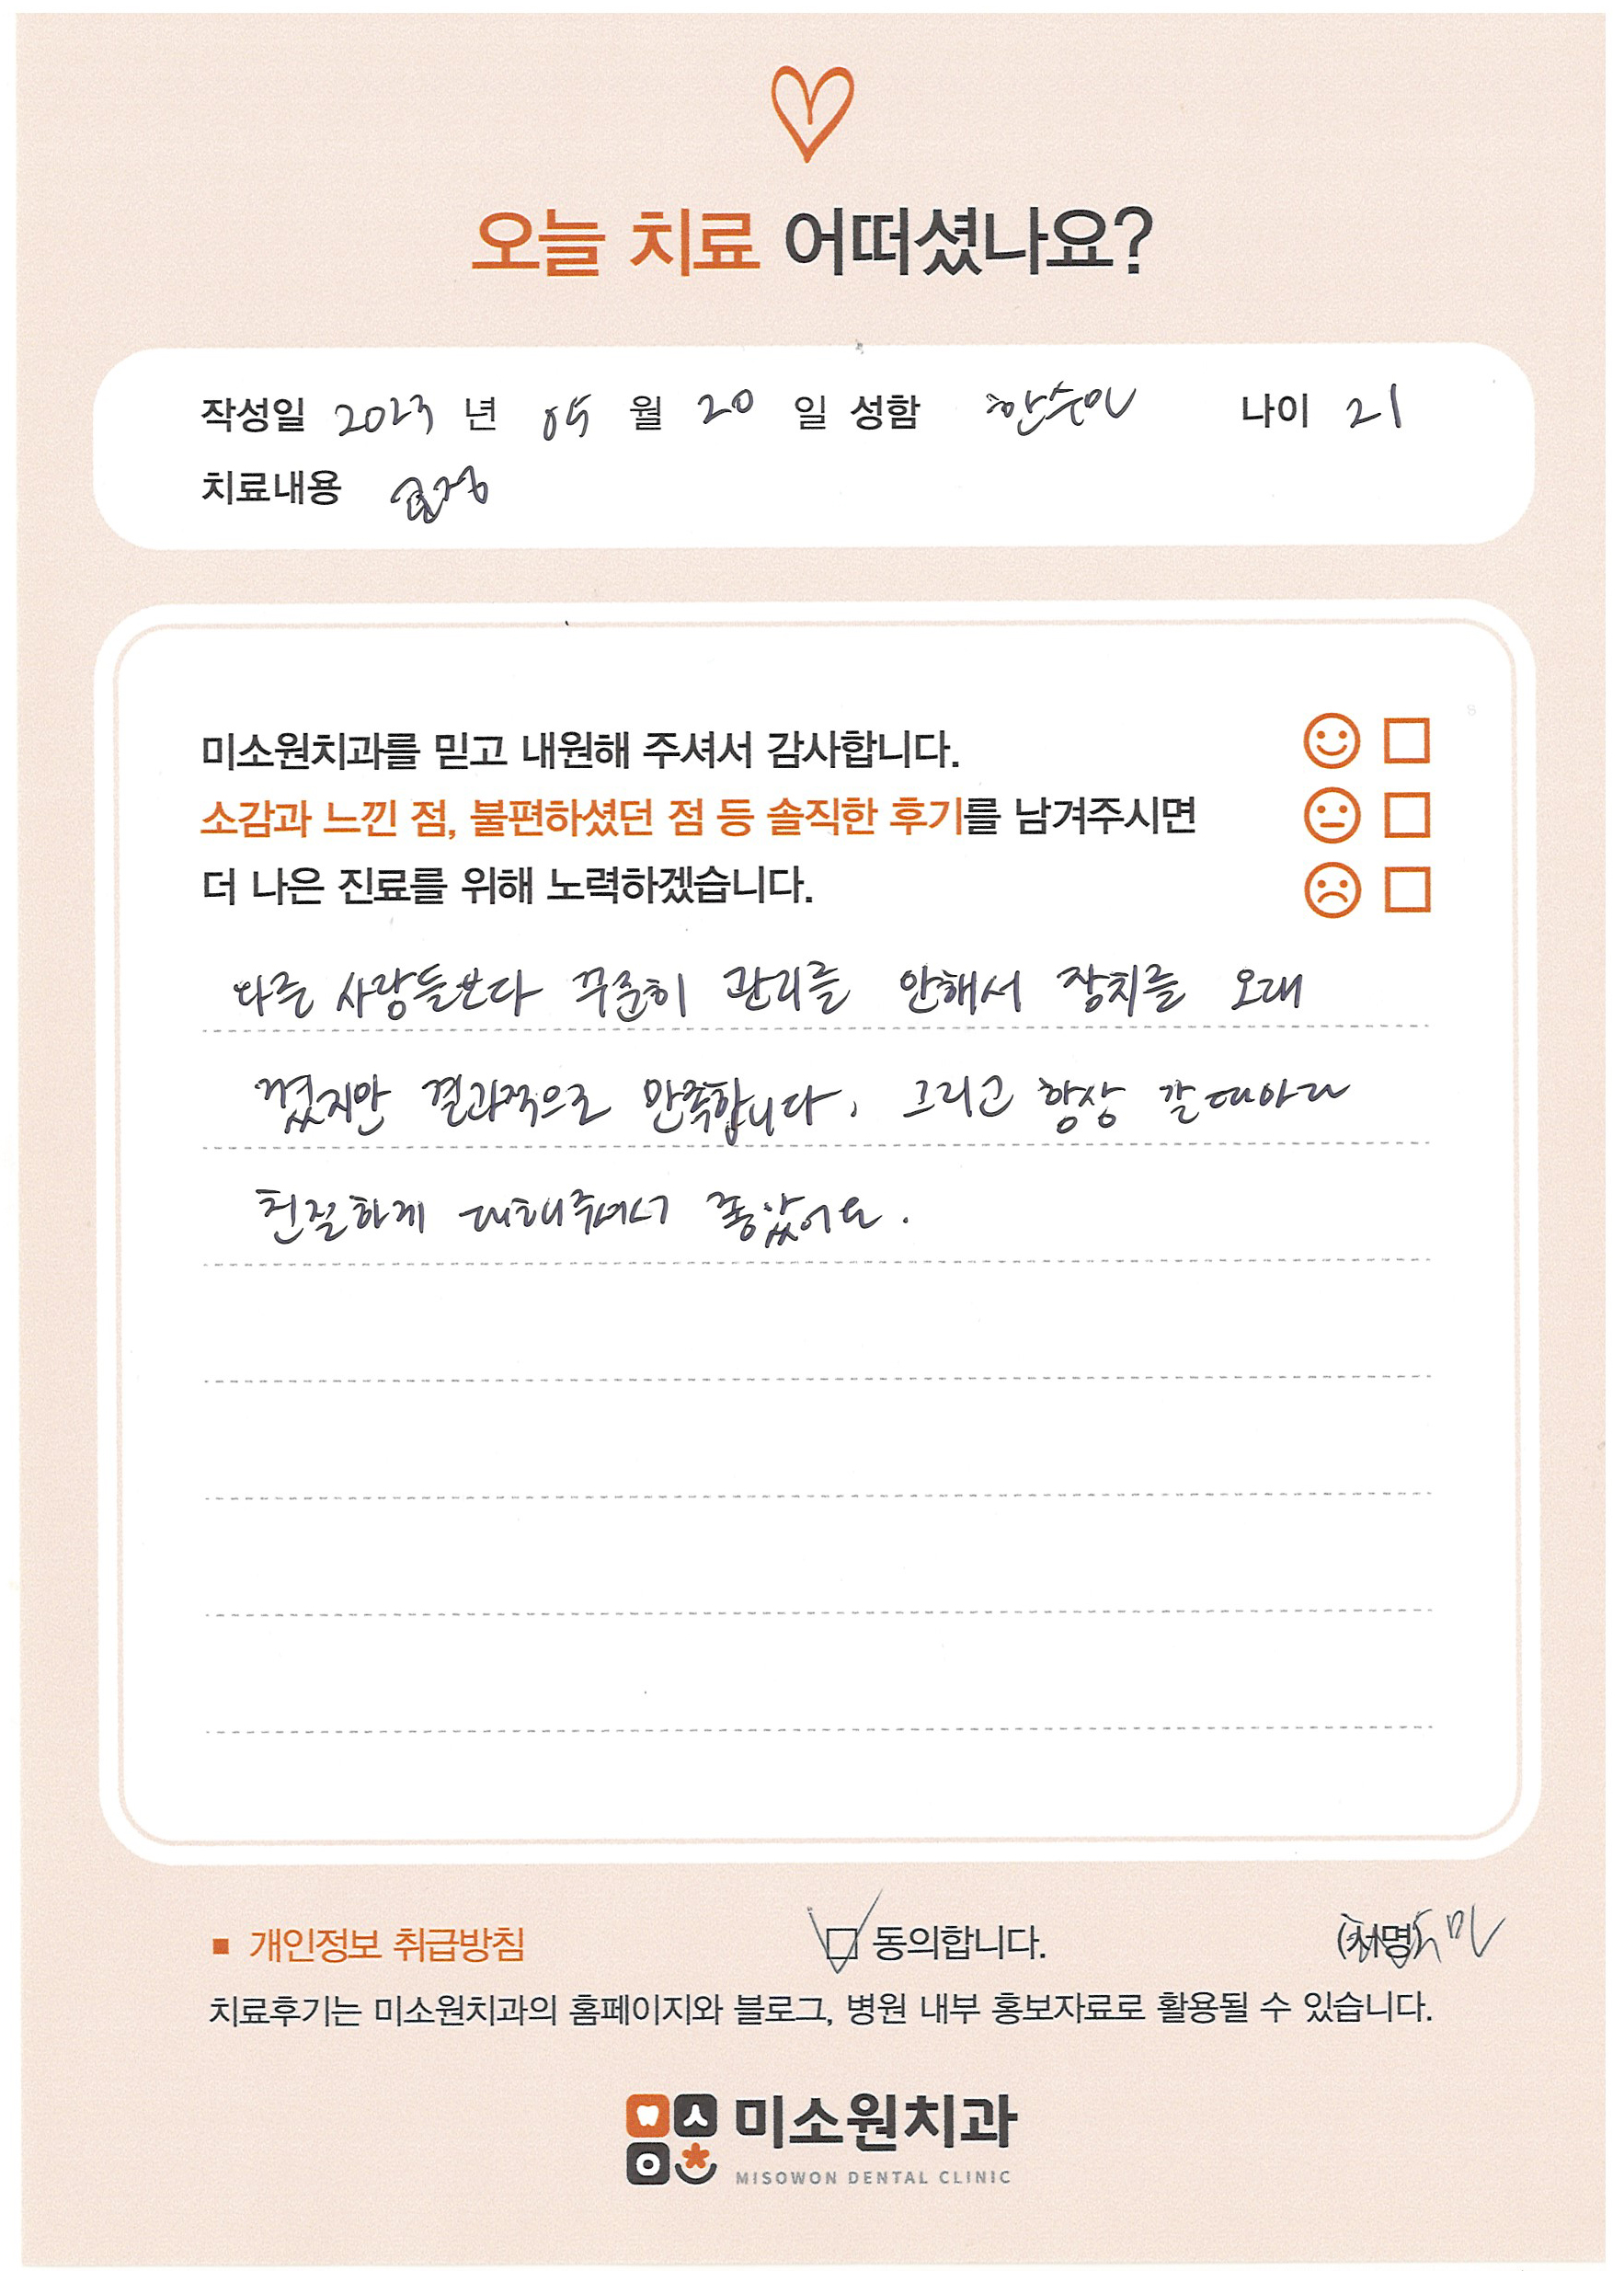 오늘 치료 어떠셨나요?
작성일 2023 년 05 월 20 일 성함 한수민 나이 21
치료내용 교정
미소원치과를 믿고 내원해 주셔서 감사합니다.
소감과 느낀 점, 불편하셨던 점 등 솔직한 후기를 남겨주시면
더 나은 진료를 위해 노력하겠습니다.
다른 사람들보다 꾸준히 관리를 안해서 장치를 오래
꼈지만 결과적으로 만족합니다. 그리고 항상 갈때마다
친절하게 대해주셔서 좋았어요.
■ 개인정보 취급방침 동의합니다. (서명) 한수민
치료후기는 미소원치과의 홈페이지와 블로그, 병원 내부 홍보자료로 활용될 수 있습니다.
미소원치과
MISOWON DENTAL CLINIC